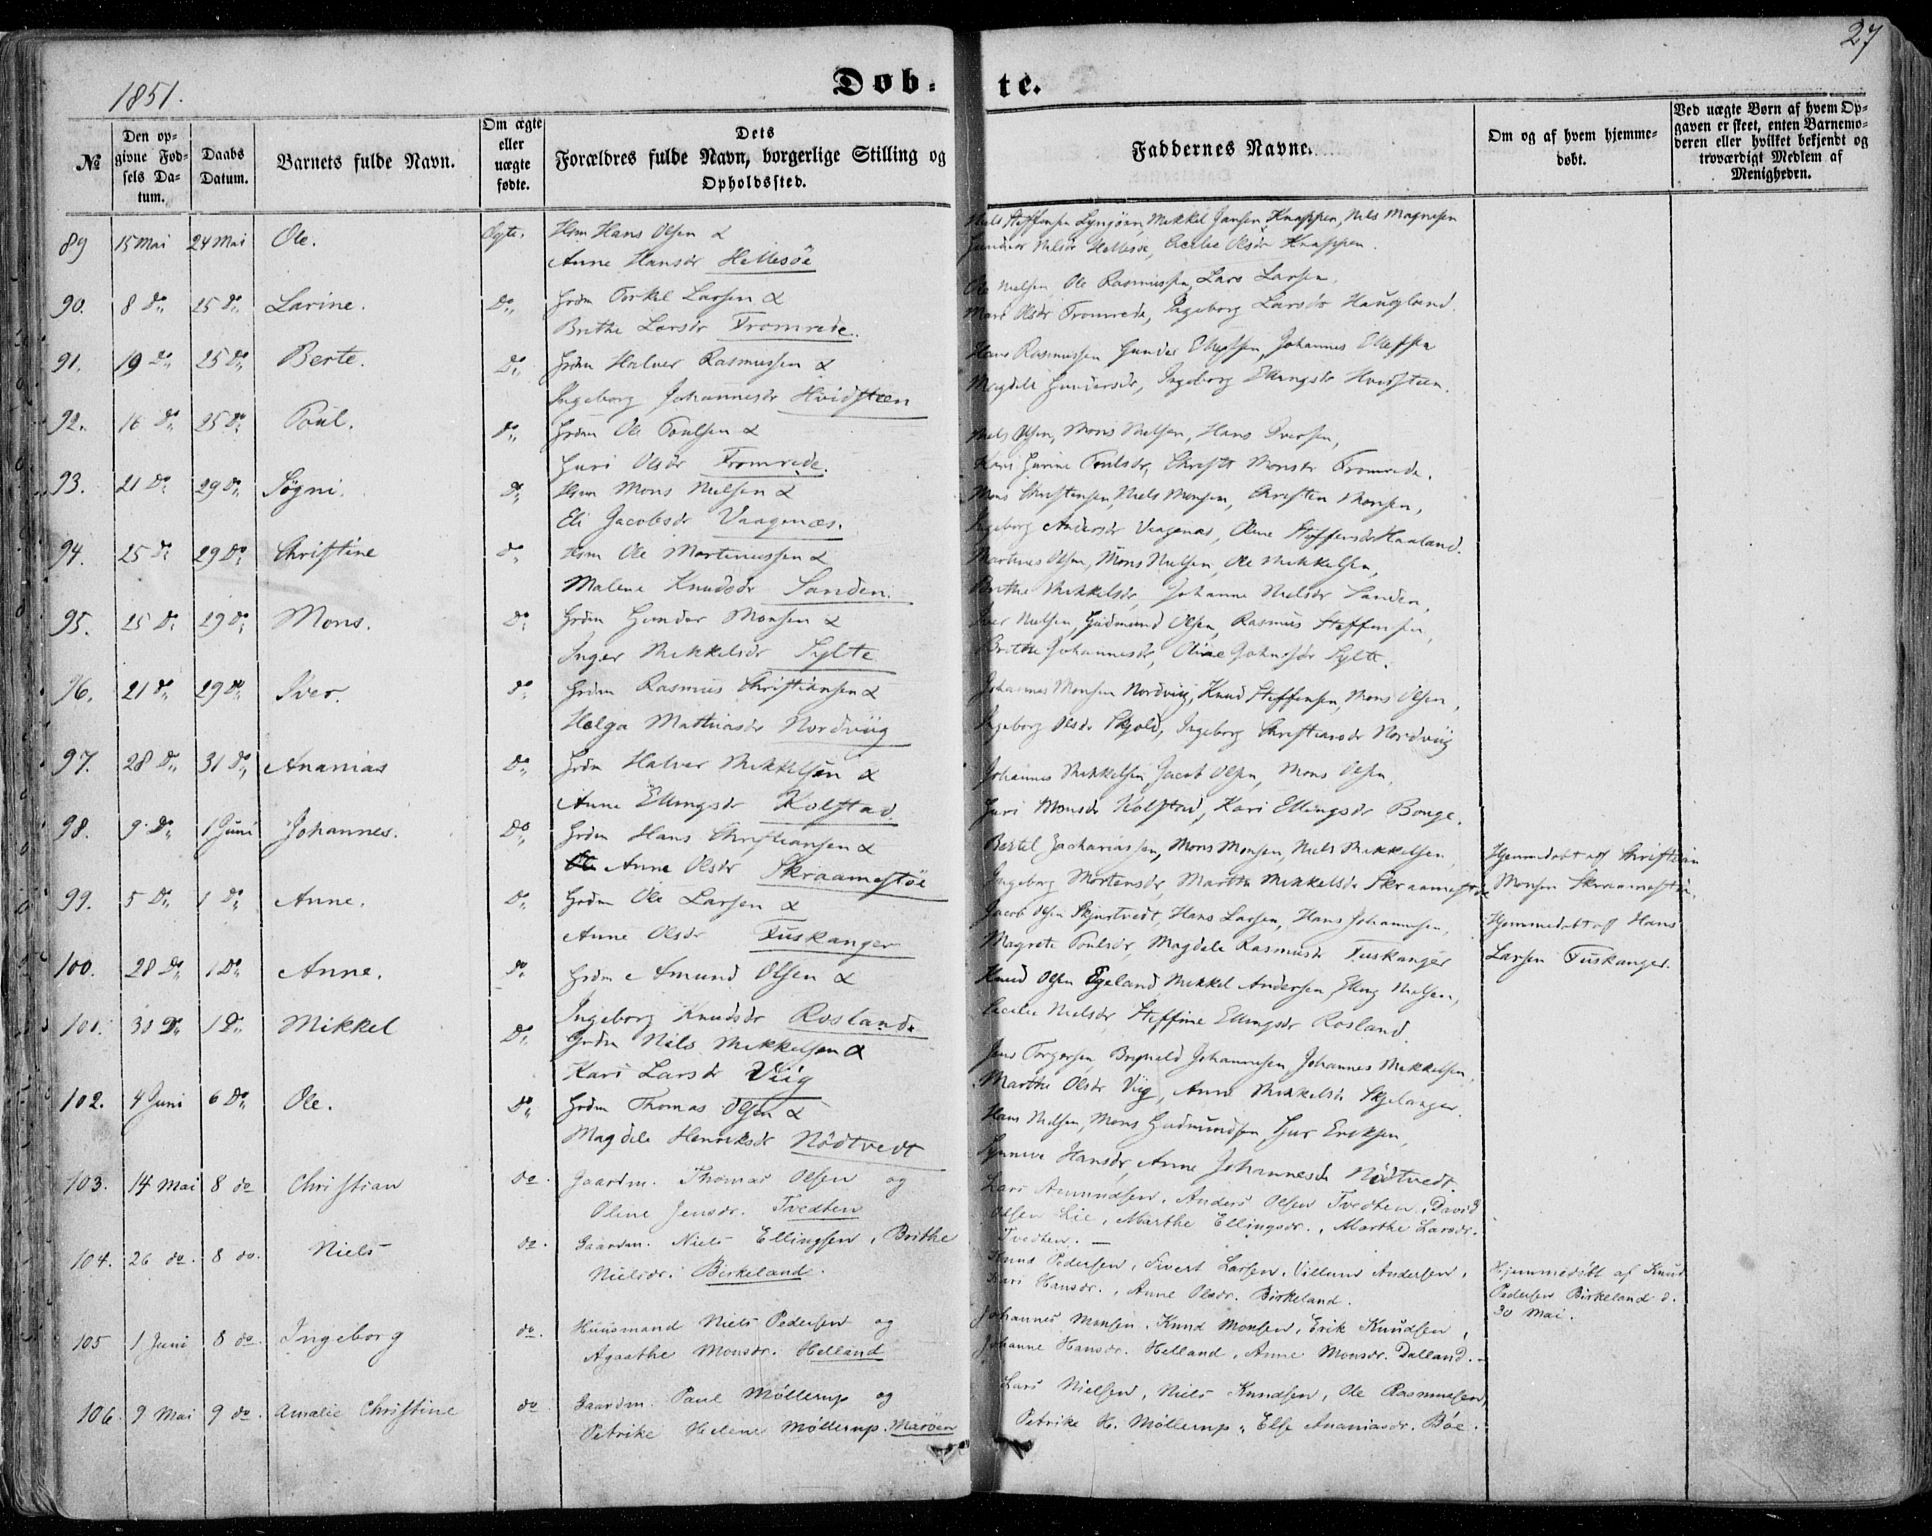 27
1851.
Døb-
te.
№
Den opgivne Fødsels Datum.
Daabs Datum.
Barnets fulde Navn.
Om ægte eller uægte fødte.
Dets Forældres fulde Navn, borgerlige Stilling og Opholdssted.
Faddernes Navne.
Om og af hvem hjemmedøbt.
Ved uægte Børn af hvem Opgaven er skeet, enten Barnemoderen eller hvilket bekjendt og troværdigt Medlem af Menigheden.
89 15 Mai 24 Mai Ole. Ægte. Hsm Hans Olsen &
Anne Hansdr Hellesöe
Niels Steffensen Lyngöen, Mikkel Jansen Knappen, Nils Magnesen
Nilsdr Hellesöe, Cecilie Olsdr Knappen.
90. 8 Do 25 Do Larine. Do Grdm Torkel Larsen &
Brithe Larsdr Fromrede.
Ole Nielsen, Ole Rasmussen, Lars Larsen,
Mari Olsdr Fromrede, Ingeborg Larsdr Haugland.
91. 19 Do 25 Do Berte. Do Grdm Halver Rasmussen &
Ingeborg Johannesdr Hvidsteen
Hans Rasmussen Gunder Johannes
Magdele Gundersdr, Ingeborg Ellingsdr Hvidsteen.
92. 16 Do 25 Do Poul. Do Grdm Ole Poulsen &
Guri Olsdr Fromrede.
Niels Olsen, Mons Nielsen, Hans Iversen,
Kari Gurine Poulsdr, Monsdr Fromrede.
93. 21 Do 29 Do Sögni. Do Hsm Mons Nielsen &
Eli Jacobsdr Vaagenæs.
Mons Christensen, Niels Monsen, Christen Monsen,
Ingeborg Andersdr Vaagenæs, Oline Steffensdr Haaland.
94. 25 Do 29 Do Christine Do Hsm Ole Martinussen &
Malene Knudsdr Sanden.
Martines Olsen, Mons Nielsen, Ole Mikkelsen,
Brithe Mikkelsdr, Johanne Nielsdr Sanden,
95. 25 Do 29 Do Mons. Do Grdm Gunder Monsen &
Inger Mikkelsdr Sylte
Iver Nielsen, Gudmund Olsen, Rasmus Steffensen,
Brithe Johannesdr, Oline Sylte.
96. 21 Do 29 Do Iver. Do Grdm Rasmus Christiansen &
Helga Mathiasdr Nordviig
Johannes Monsen Nordviig, Knud Steffensen, Mons Olsen,
Ingeborg Olsdr Skjold, Ingeborg Christiansdr Nordviig
97. 28 Do 31 Do Ananias Do Grdm Halver Mikkelsen &
Anne Ellingsdr Kolstad
Johannes Mikkelsen Jacob Olsen, Mons Olsen,
Guri Monsdr Kolstad, Kari Ellingsdr Bonge.
98. 9 Do 1 Juni Johannes. Do Grdm Hans Christiansen &
Anne Olsdr Skraamestöe
Bertel Zachariassen, Mons Monsen, Niels Mikkelsen
Ingeborg Mortensdr, Marthe Mikkelsdr Skraamestöe
Hjemmedöbt af Christian
Monsen Skraamestöe.
99. 5 Do 1 Do Anne. Do Grdm Ole Larsen &
Anne Olsdr Tuskanger
Jacob Olsen Skjertvedt, Hans Larsen, Hans Johannesen,
Magrete Poulsdr, Magdele Rasmusdr Tuskanger
Hjemmedöbt af Hans
Larsen Tuskanger.
100. 28 Do 1 Do Anne. Do Grdm Amund Olsen &
Ingeborg Knudsdr Rosland.
Knud Olsen Egeland Mikkel Andersen, Elling Nielsen,
Cecilie Nielsdr, Steffine Ellingsdr Rosland.
101. 30 Do 1 Do Mikkel Do Grdm Nils Mikkelsen &
Kari Larsdr Viig
Jens Torgersen, Brynild Johannesen, Johannes Mikkelsen,
Marthe Olsdr Viig, Anne Mikkelsdr Skjelanger.
102. 4 Juni 6 Do Ole. Do Grdm Thomas Olsen &
Magdele Henriksdr Nödtvedt
Hans Nielsen, Mons Gudmundsen, Sjur Eriksen,
Synneve Hansdr, Anne Johannesdr Nödtvedt.
103. 14 Mai 8 do Christian do. Gaardm. Thomas Olsen og
Oline Jensdr. Tvedten
Lars Amundsen, Anders Olsen Tvedten, David
Olsen Lie, Marthe Ellingsdr., Marthe Larsdr.
Tvedten.
104. 26 do. 8 do. Niels do. Gaardm. Niels Ellingsen, Brithe
Nielsdr. Birkeland.
Knud Pedersen, Sivert Larsen, Villum Andersen,
Kari Hansdr., Anne Olsdr. Birkeland.
Hjemmedöbt af Knud
Pedersen Birkeland d.
30 Mai.
105 1 Juni 8 do. Ingeborg do. Huusmand Niels Pedersen og
Agaathe Monsdr. Helland
Johannes Monsen, Knud Monsen, Erik Knudsen,
Johanne Hansdr. Helland, Anne Monsdr. Dalland.
106. 9 Mai 9 do. Amalie Christine do. Gaardm. Paul Möllerup og
Petrike Helene Möllerup. Maröen
Lars Nielsen, Niels Knudsen, Ole Rasmussen,
Petrike H. Möllerup, Else Ananiasdr. Böe.